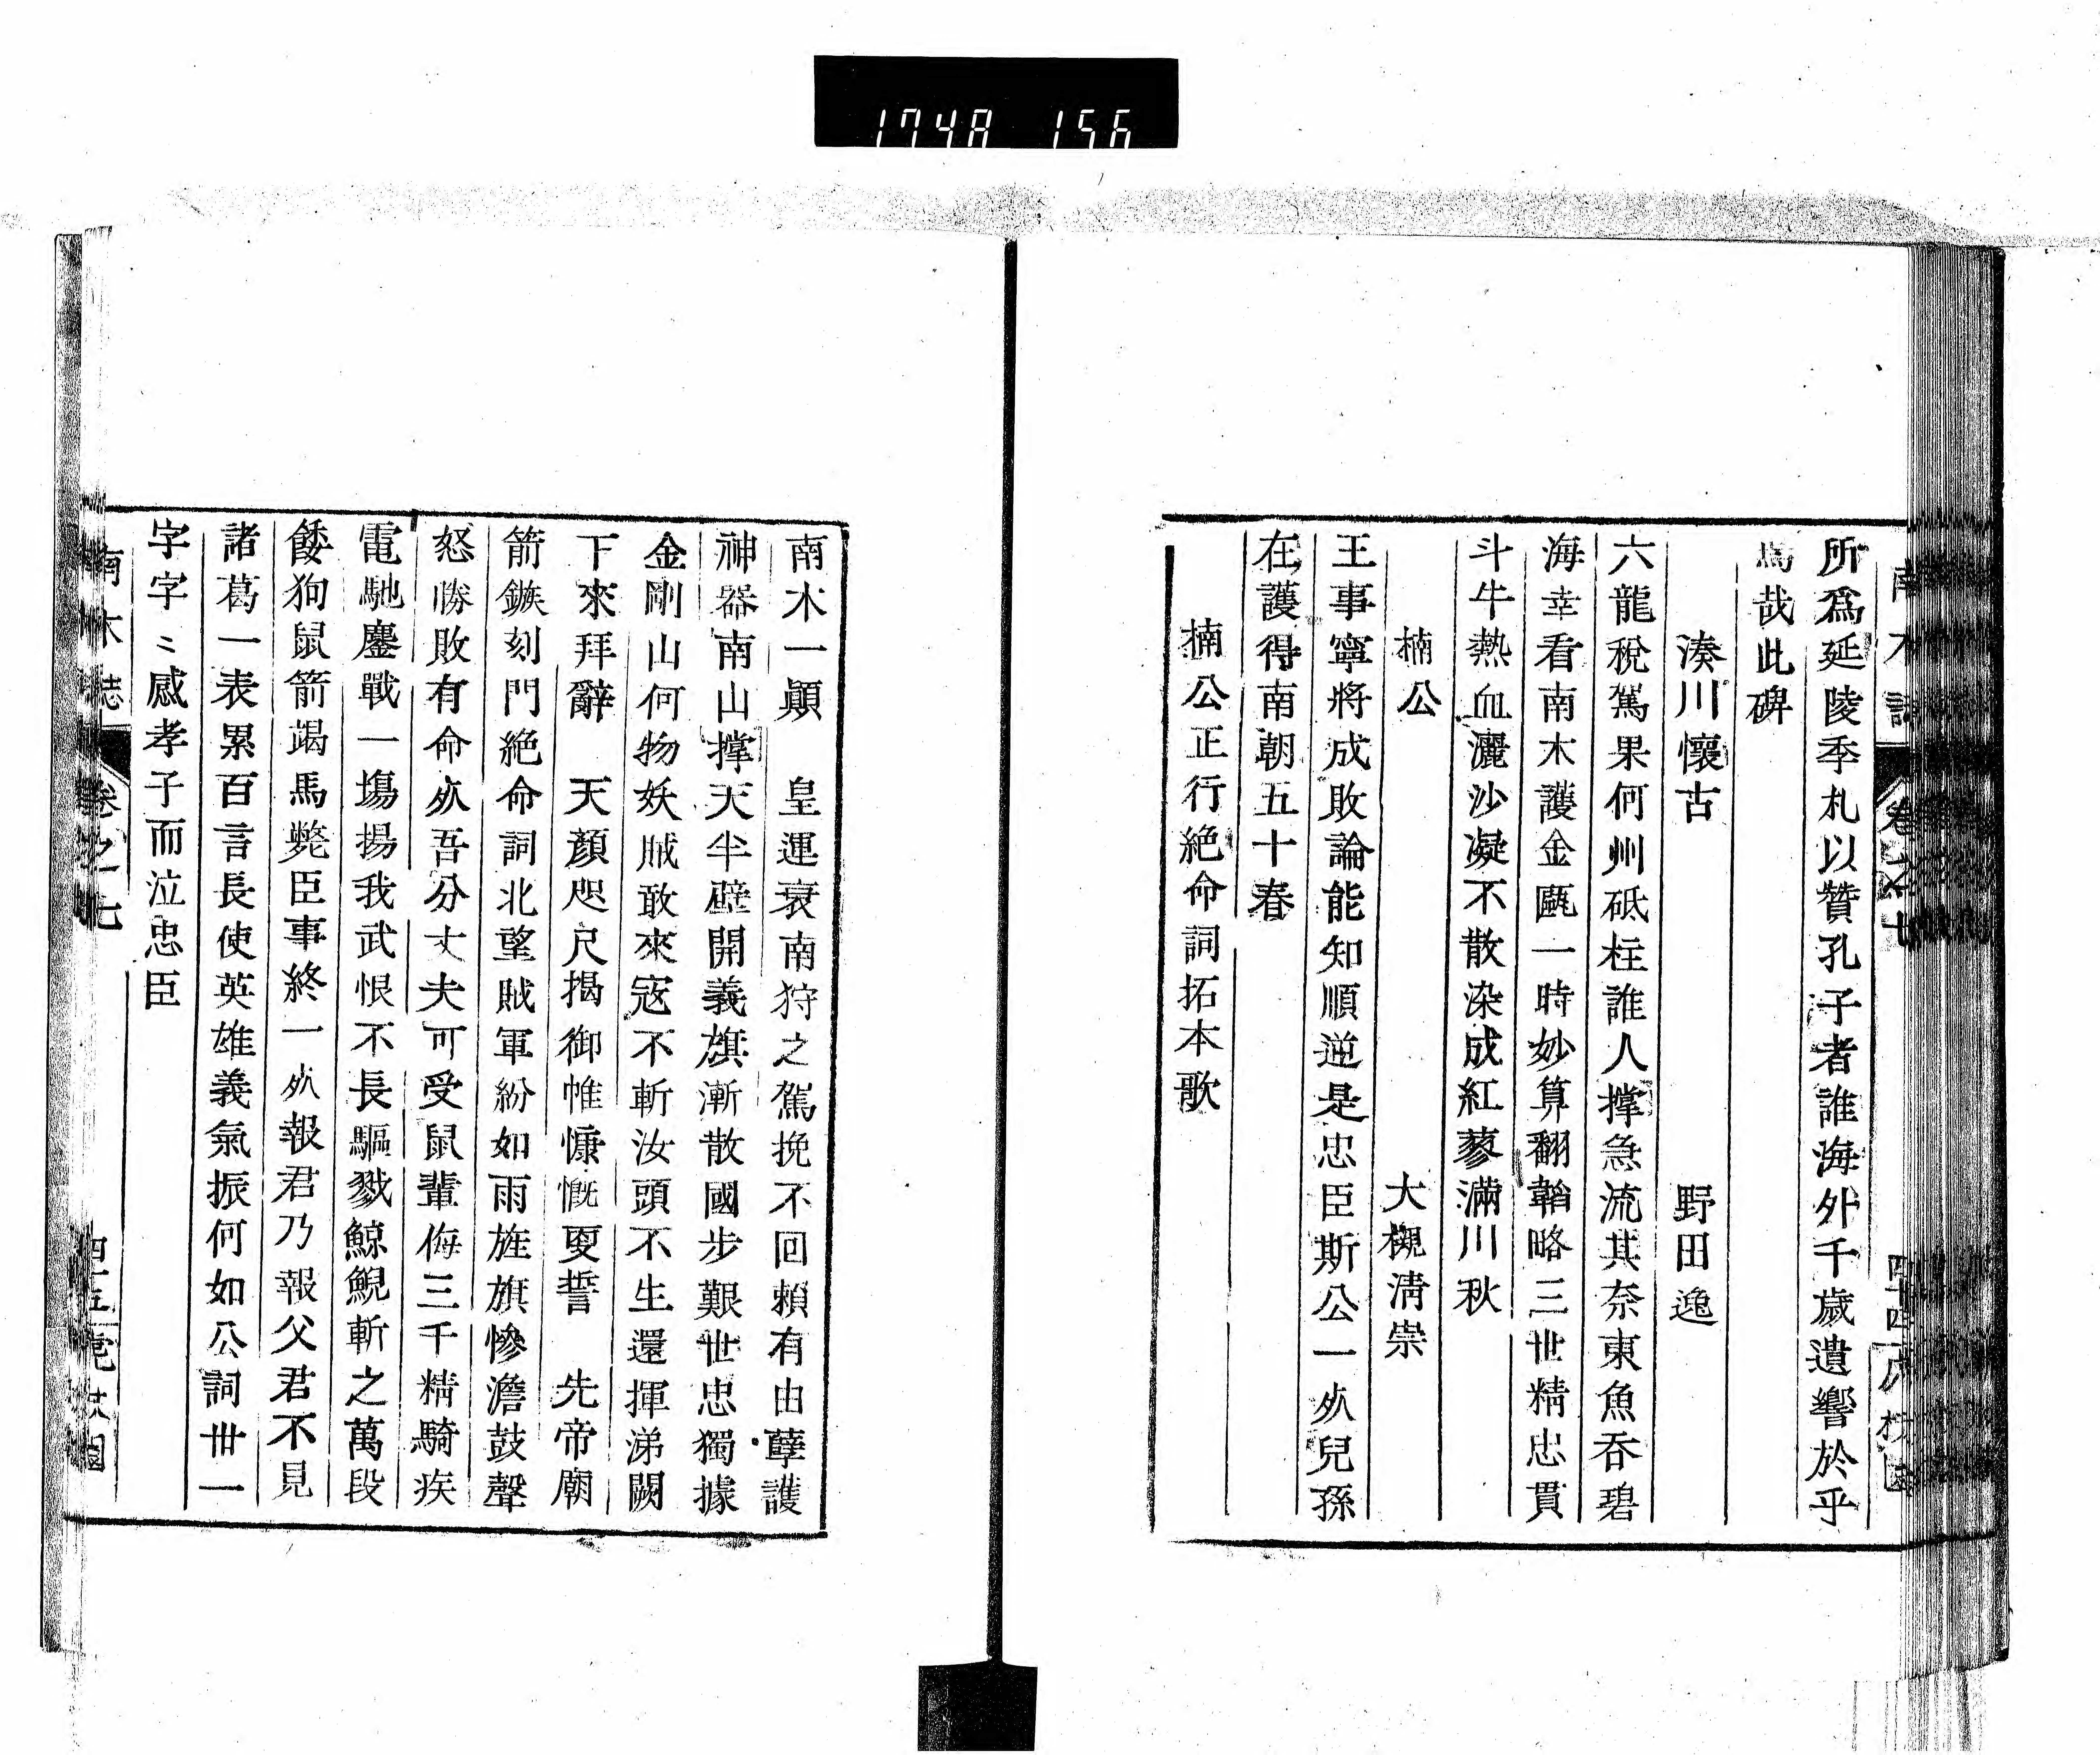 1748 156
南木誌 卷之七
所爲延陵季札以贊孔子者誰海外千歲遺響於乎
焉哉此碑
湊川懷古 野田逸
六龍稅駕果何州砥柱誰人撐急流其奈東魚吞碧
海幸看南木護金甌一時妙算翻韜略三世精忠貫
斗牛熱血灑沙凝不散染成紅蓼滿川秋
楠公 大槻淸崇
王事寧將成敗論能知順逆是忠臣斯公一死兒孫
在護得南朝五十春
楠公正行絕命詞拓本歌
南木一顚 皇運衰南狩之駕挽不回賴有由孽護
神器南山撐天半壁開義旗漸散國步艱世忠獨據
金剛山何物妖賊敢來寇不斬汝頭不生還揮涕闕
下來拜辭 天顏咫尺揭御帷慷慨更誓 先帝廟
箭鏃刻門絕命詞北望賊軍紛如雨旌旗慘澹鼓聲
怒勝敗有命死吾分丈夫可受鼠輩侮三千精騎疾
電馳鏖戰一塲揚我武恨不長驅戮鯨鯢斬之萬段
餧狗鼠箭竭馬斃臣事終一死報君乃報父君不見
諸葛一表累百言長使英雄義氣振何如公詞卅一
字字〻感孝子而泣忠臣
南木誌 卷之七 四十五